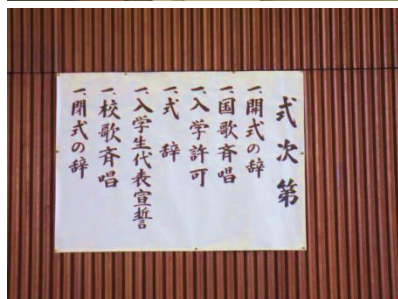 式次第
一、開式の辞
一、国歌斉唱
一、入学許可
一、式辞
一、入学生代表宣誓
一、校歌斉唱
一、閉式の辞